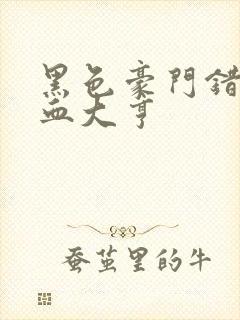 黑色豪門錯
血大亨
蚕茧里的牛